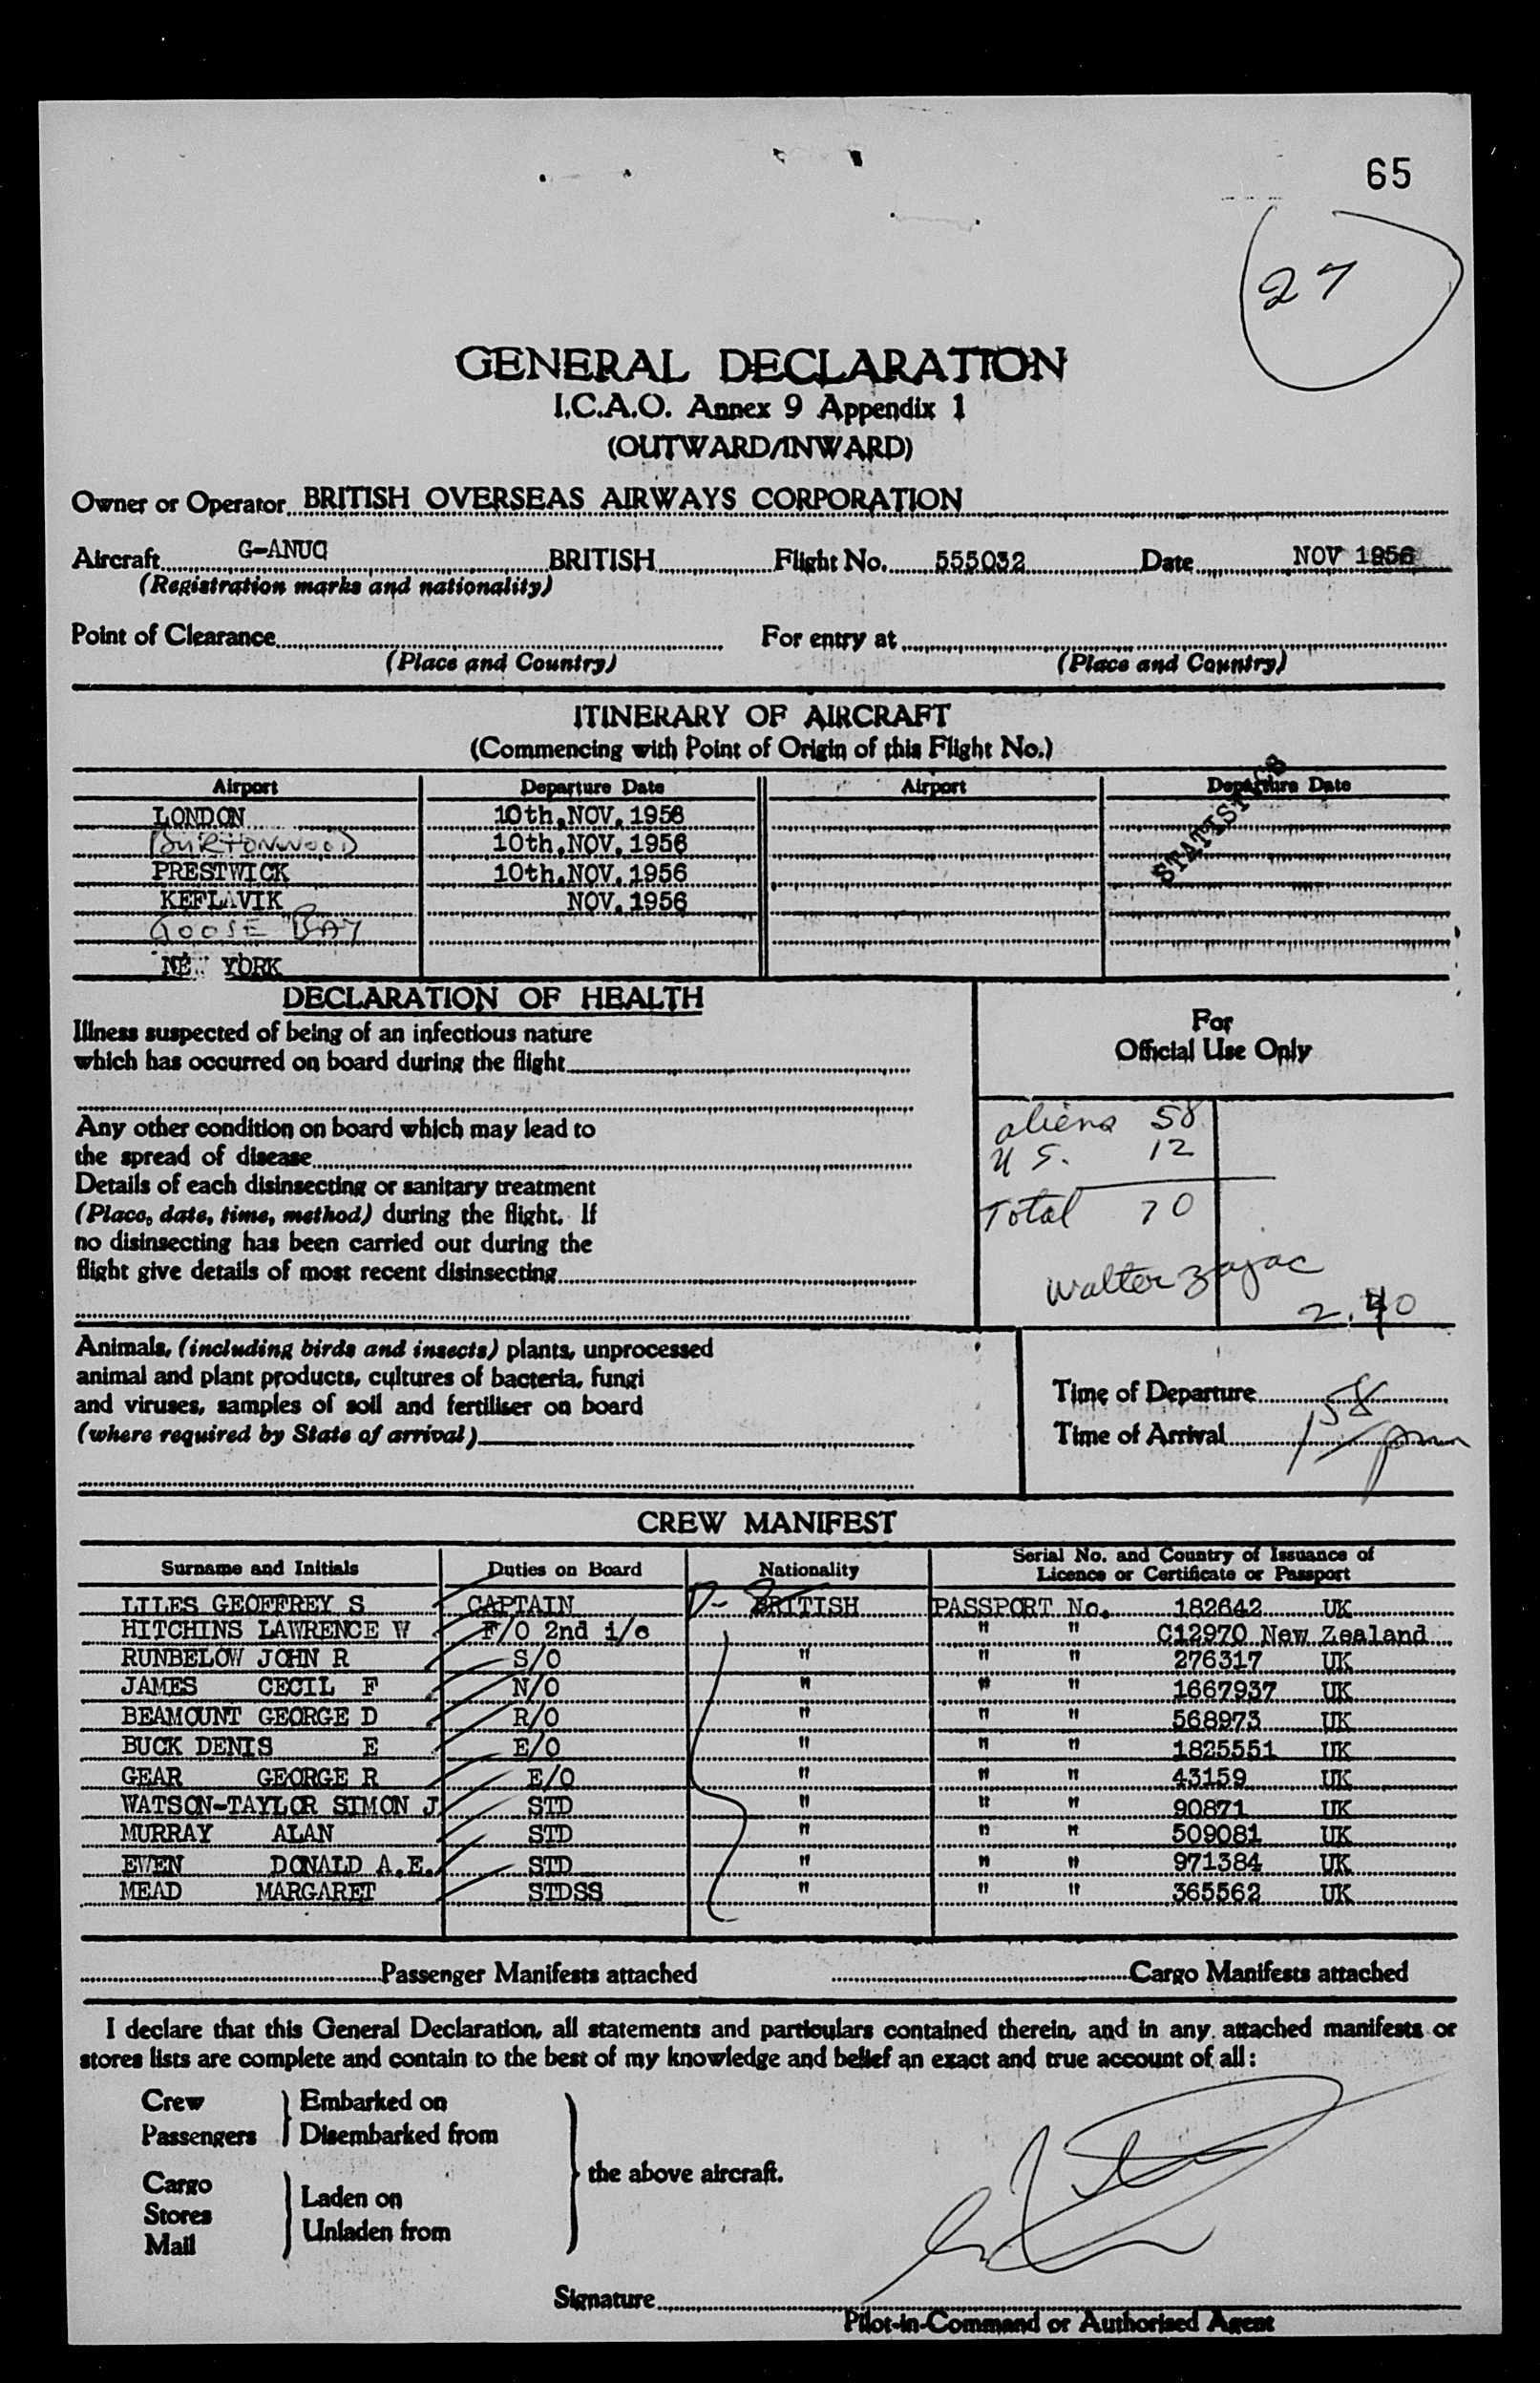 65
27
GENERAL DECLARATION
I.C.A.O. Annex 9 Appendix 1
(OUTWARD/INWARD)
Owner or Operator BRITISH OVERSEAS AIRWAYS CORPORATION
Aircraft G-ANUC BRITISH Flight No. 555032 Date NOV 1956
(Registration marks and nationality)
Point of Clearance For entry at
(Place and Country) (Place and Country)
ITINERARY OF AIRCRAFT
(Commencing with Point of Origin of this Flight No.)
Airport Departure Date Airport Departure Date
STATISTICS
LONDON 10th.NOV.1956
BURTONWOOD 10th.NOV.1956
PRESTWICK 10th.NOV.1956
KEFLAVIK NOV.1956
GOOSE BAY
NEW YORK
DECLARATION OF HEALTH
Illness suspected of being of an infectious nature
which has occurred on board during the flight
Any other condition on board which may lead to
the spread of disease
Details of each disinsecting or sanitary treatment
(Place, date, time, method) during the flight. If
no disinsecting has been carried out during the
flight give details of most recent disinsecting
For
Official Use Only
aliens 58
U S. 12
Total 70
Walter Zajac
2.40
Animals, (including birds and insects) plants, unprocessed
animal and plant products, cultures of bacteria, fungi
and viruses, samples of soil and fertiliser on board
(where required by State of arrival)
Time of Departure
Time of Arrival 1 58 pm
CREW MANIFEST
Surname and Initials Duties on Board Nationality Serial No. and Country of Issuance of
Licence or Certificate or Passport
LILES GEOFFREY S CAPTAIN BRITISH PASSPORT No. 182642 UK
HITCHINS LAWRENCE W F/O 2nd i/c " " C12970 New Zealand
RUNBELOW JOHN R S/O " " " 276317 UK
JAMES CECIL F N/O " " " 1667937 UK
BEAMOUNT GEORGE D R/O " " " 568973 UK
BUCK DENIS E E/O " " " 1825551 UK
GEAR GEORGE R E/O " " " 43159 UK
WATSON-TAYLOR SIMON J STD " " " 90871 UK
MURRAY ALAN STD " " " 509081 UK
EWEN DONALD A.E. STD " " " 971384 UK
MEAD MARGARET STDSS " " " 365562 UK
Passenger Manifests attached Cargo Manifests attached
I declare that this General Declaration, all statements and particulars contained therein, and in any attached manifests or
stores lists are complete and contain to the best of my knowledge and belief an exact and true account of all:
Crew Embarked on
Passengers Disembarked from
the above aircraft.
Cargo
Stores
Mail
Laden on
Unladen from
Signature
Pilot-in-Command or Authorised Agent